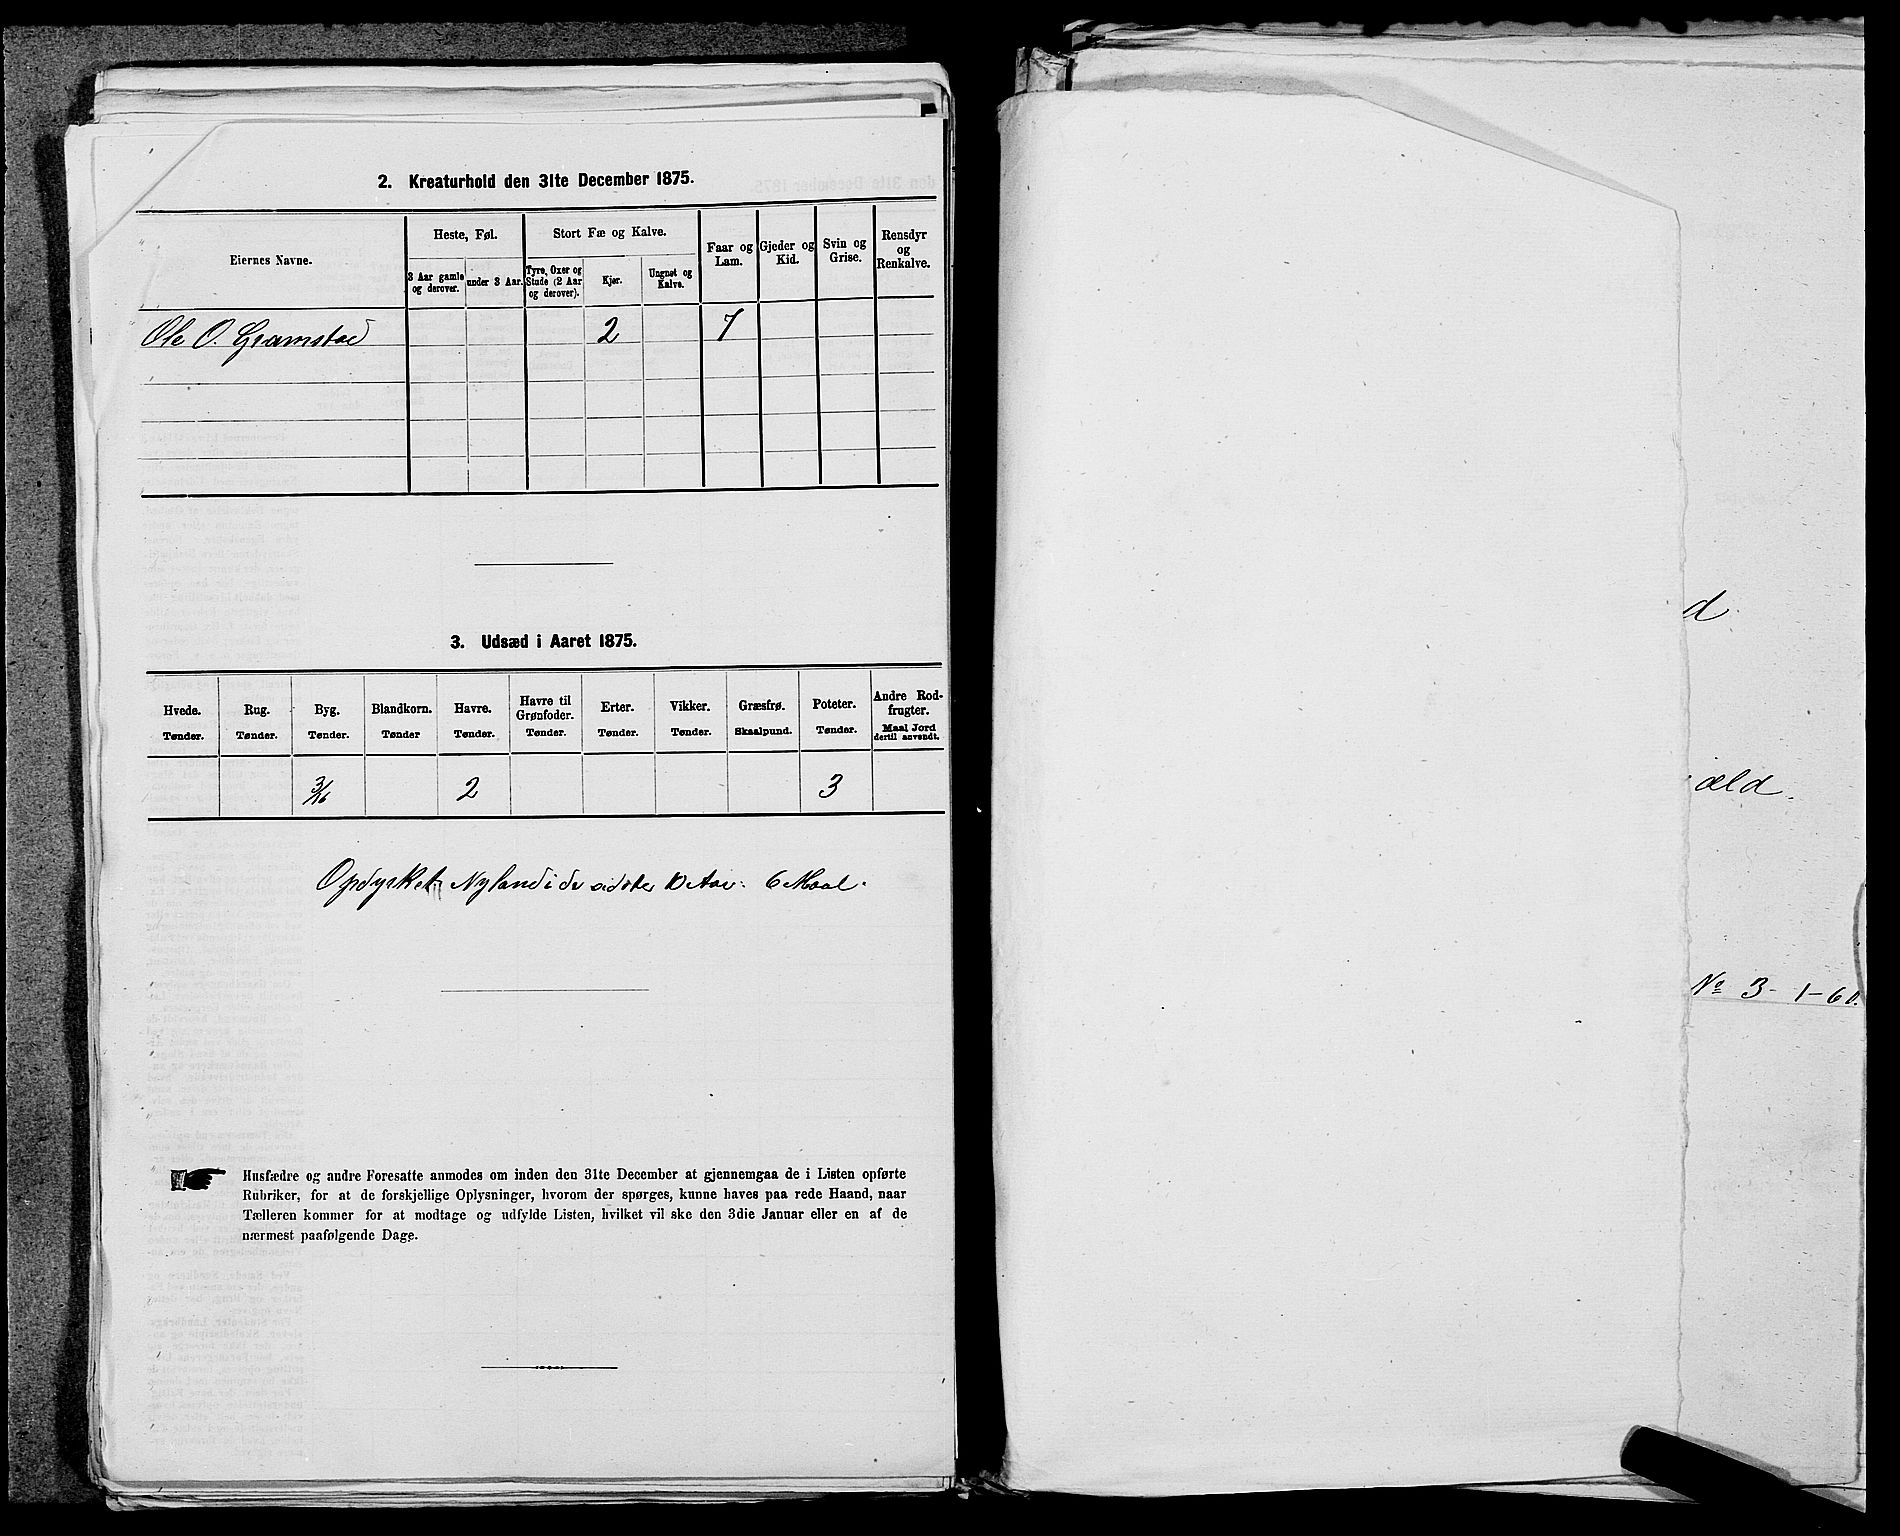 2. Kreaturhold den 31te December 1875.
Eiernes Navne.
Heste, Føl.
Stort Fæ og Kalve.
Faar og Lam.
Gjeder og Kid.
Svin og Grise.
Rensdyr og Renkalve.
3 Aar gamle og derover.
under 3 Aar.
Tyre, Oxer og Stude (2 Aar og derover).
Kjør.
Ungnøt og Kalve.
Ole O. Gramstad 2 7
3. Udsæd i Aaret 1875.
Hvede. Rug. Byg. Blandkorn. Havre. Havre til Grønfoder. Erter. Vikker. Græsfrø. Poteter. Andre Rodfrugter.
Tønder. Tønder. Tønder. Tønder Tønder. Tønder. Tønder. Tønder. Skaalpund. Tønder. Maal Jord dertil anvendt.
3/16 2 3
Opdysket Nyland i de sidste 10 Aar: 6 Maal.
Husfædre og andre Foresatte anmodes om inden den 31te December at gjennemgaa de i Listen opførte
Rubriker, for at de forskjellige Oplysninger, hvorom der spørges, kunne haves paa rede Haand, naar
Tælleren kommer for at modtage og udfylde Listen, hvilket vil ske den 3die Januar eller en af de
nærmest paafølgende Dage.
d.
æld.
No 3-1-60.